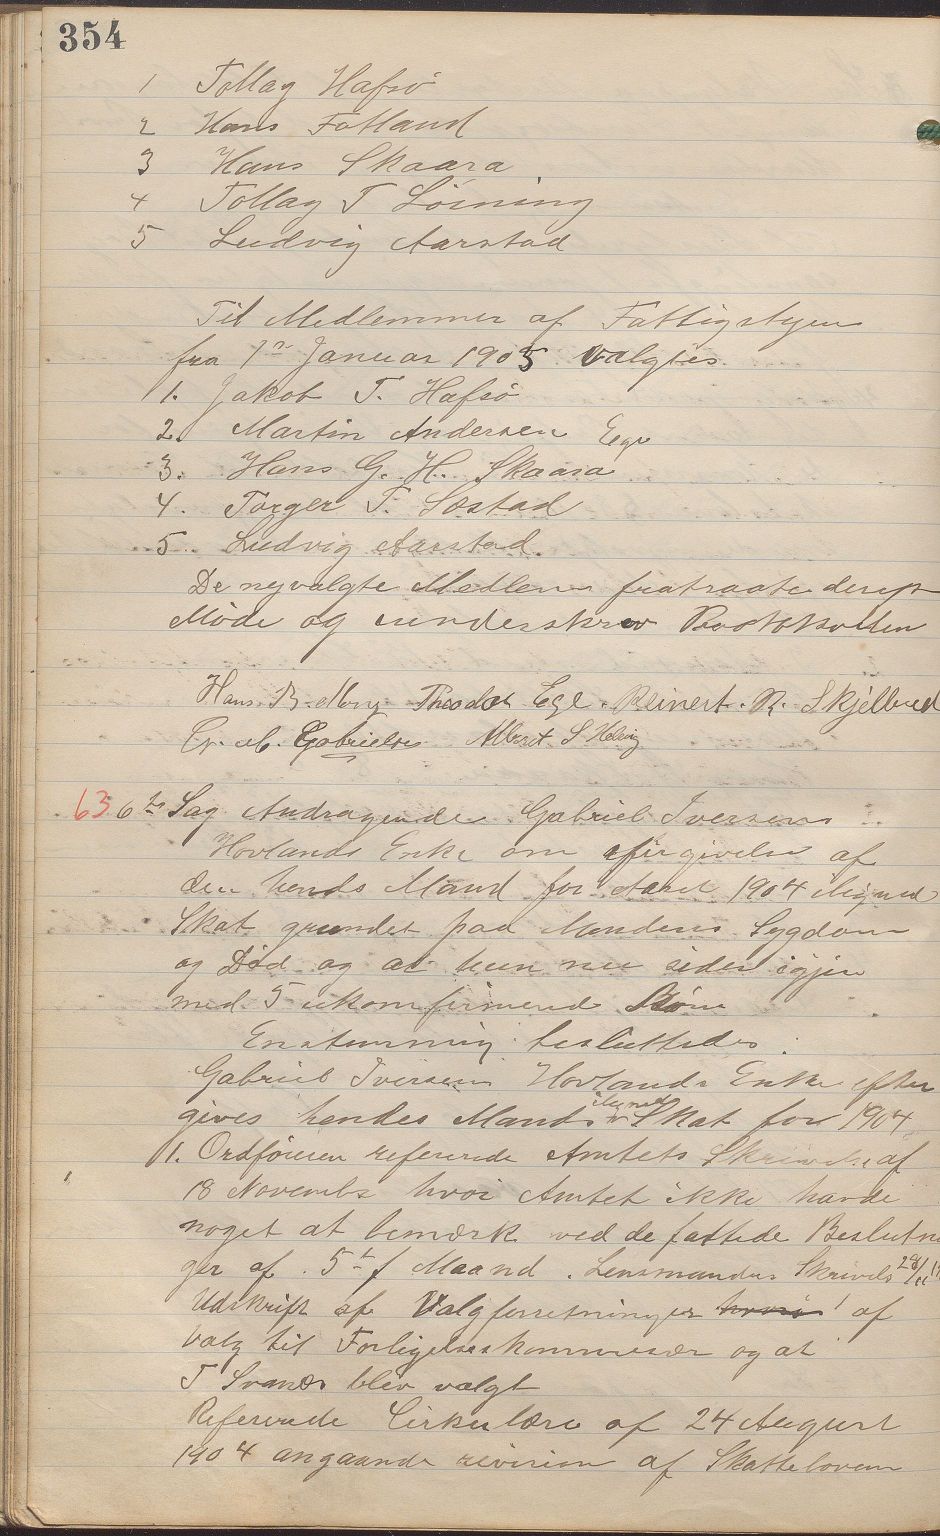 354
1 Tollag Hafsø
2 Hans Fotland
3 Hans Skaara
4 Tollag T Løining
5 Ludvig Aarstad
Til Medlemmer af Fattigstyen
fra 1ste Januar 1905 valgtes
1. Jakob T. Hafsø
2. Martin Andersen Ege
3. Hans G. H. Skaara
4. Torger T. Sæstad
5. Ludvig Aarstad.
De nyvalgte Medlem fratraate derep
Møde og underskrev Protokollen
Hans B. Theodor Ege. Reinert. R. Skjelbred
Gabrielsen Albert S Helvig
63 6te Sag Andragende Gabriel Iversens
Hovlands Enke om eftergivelse af
den hends Mand for Aaret 1904 iligned
Skat grundet paa Mandens Sygdom
og Død og at hun nu sider igjen
med 5 ukonfirmerede Børn
Enstemmig besluttedes:
Gabriel Iversens Hovlands Enke efter
gives hendes Mands ilignede Skat for 1904
1. Ordføreren refererede Amtets Skrivelse af
18 Novembr hvori Amtet ikke havde
noget at bemærk ved de fattede Beslutnin
ger af 5te f Maaned. Lensmandens Skrivels 28/11
Udskrift af Valgforretninger hvori af
Valg til Forligelseskommesær og at
T Svanæs blev valgt
Refererede Cirkulære af 24 August
1904 angaaende revision af Skatteloven